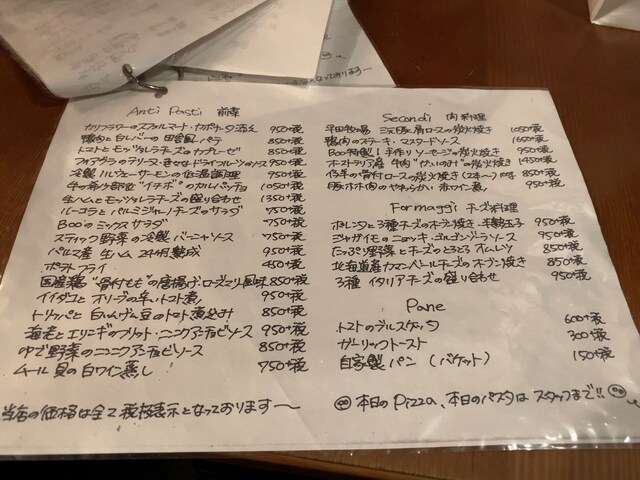 Anti Pasti 前菜
カリフラワーのスフォルマート・ 950+税
鴨肉と白レバーの田舎風パテ 850+税
トマトとモッツァレラチーズのカプレーゼ 850+税
フォアグラのテリーヌ・ドライフルーツのソース 950+税
冷製 サーモンの低温調理 950+税
牛の希少部位"イチボ"のカルパッチョ 1050+税
生ハムとモッツァレラチーズの盛り合わせ 1350+税
ルーコラとパルミジャーノチーズのサラダ 750+税
Booのミックスサラダ 750+税
スティック野菜の冷製バーニャソース 750+税
パルマ産 生ハム 24ヶ月熟成 950+税
ポテトフライ 450+税
国産鶏"骨付もも"の唐揚げ・ローズマリー風味 850+税
イイダコとオリーブの辛いトマト煮 950+税
トリッパと白いんげん豆のトマト煮込み 850+税
海老とエリンギのフリット・ニンニクアンチョビソース 950+税
ゆで野菜のニンニクアンチョビソース 850+税
ムール貝の白ワイン蒸し 750+税
当店の価格は全て税抜表示となっております〜
Secondi 肉料理
平田牧場 三元豚 肩ロースの炭火焼き 1050+税
鴨肉のステーキ・マスタードソース 1600+税
Boo特製!手作りソーセージの炭火焼き 950+税
オーストラリア産 牛肉"かいのみ"の炭火焼き 1450+税
仔羊の骨付ロースの炭火焼き(2本〜) 850+税
豚ホホ肉のやわらかい赤ワイン煮 950+税
Formaggi チーズ料理
ポレンタと3種チーズのオーブン焼き・半熟玉子 950+税
ジャガイモのニョッキ・ゴルゴンゾーラソース 950+税
たっぷり野菜とチーズのとろとろオムレツ 850+税
北海道産カマンベールチーズのオーブン焼き 850+税
3種 イタリアチーズの盛り合わせ 950+税
Pane
トマトのブルスケッタ 600+税
ガーリックトースト 300+税
自家製パン(バゲット) 150+税
本日のPizza、本日のパスタはスタッフまで!!